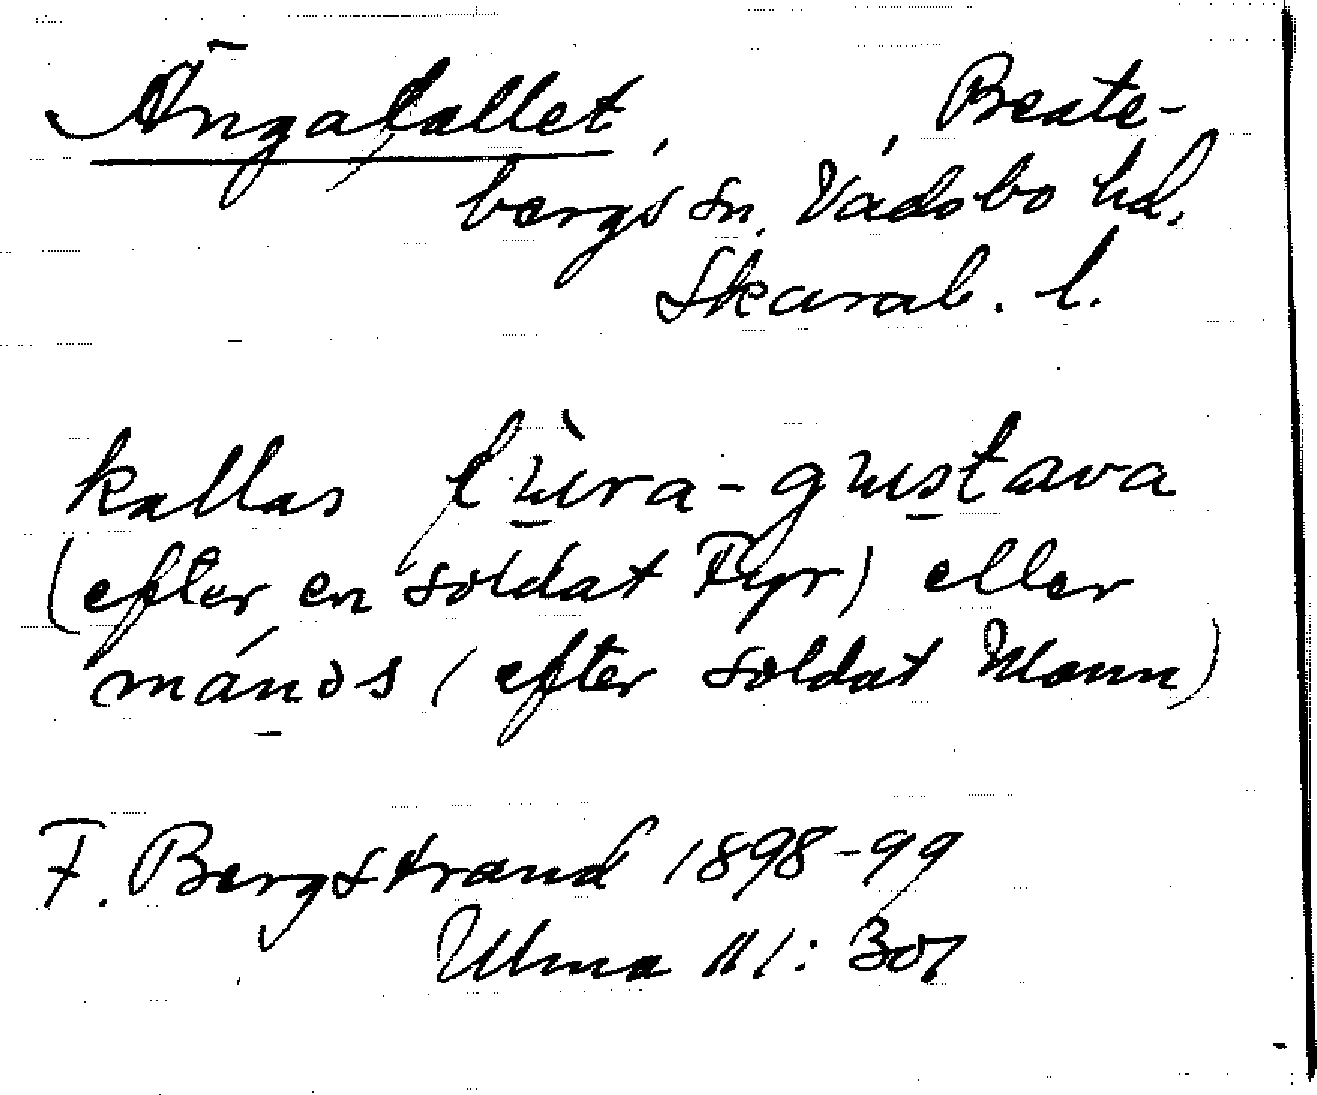 Ängafallet, , Beate-
bergs sn. Vadsbo hd.
Skarab. l.
kallas fu̱̇ra-gus̱tava
(efter en soldat Fyr) eller
mános (efter soldat Mann)
F. Bergstrand 1898-99
Ulma 111: 307